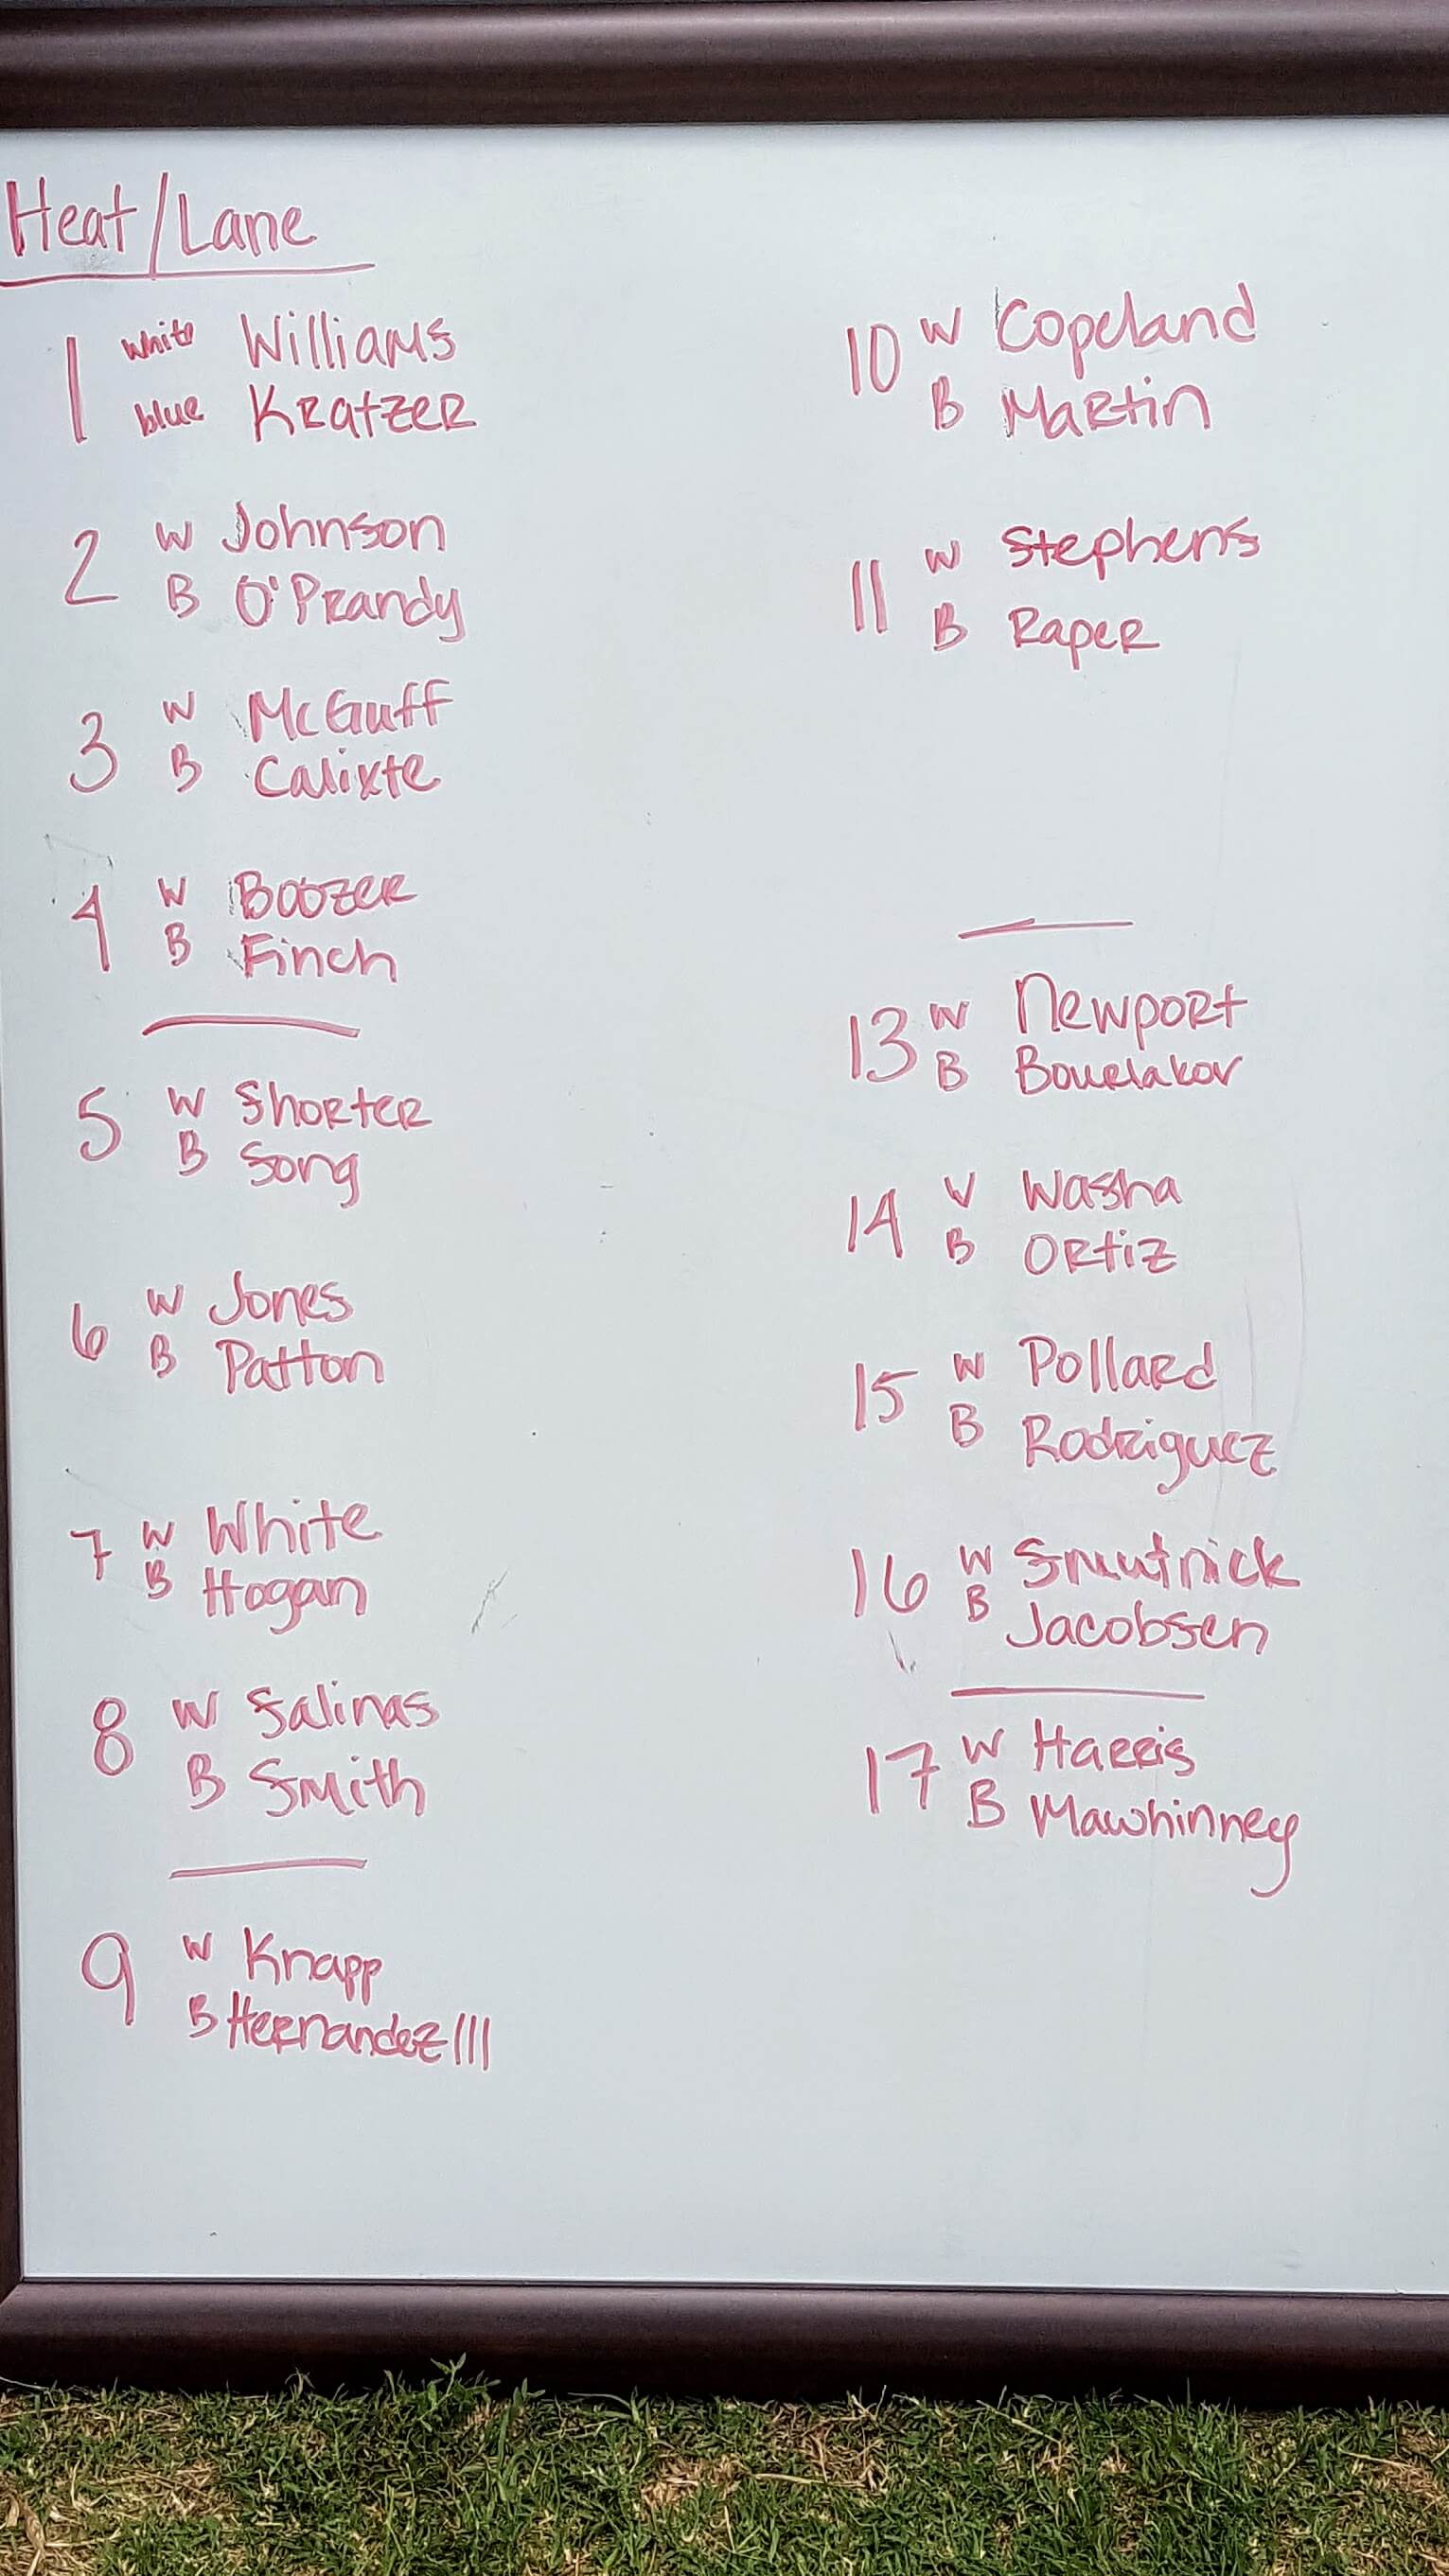 Heat/Lane
1 white Williams
blue Kratzer
2 W Johnson
B O'Prandy
3 W McGuff
B Calixte
4 W Boozer
B Finch
5 W Shorter
B Song
6 W Jones
B Patton
7 W White
B Hogan
8 W Salinas
B Smith
9 W Knapp
B Hernandez III
10 W Copeland
B Martin
11 W Stephens
B Raper
13 W Newport
B
14 W Washa
B Ortiz
15 W Pollard
B Rodriguez
16 W Smutnick
B Jacobsen
17 W Harris
B Mawhinney